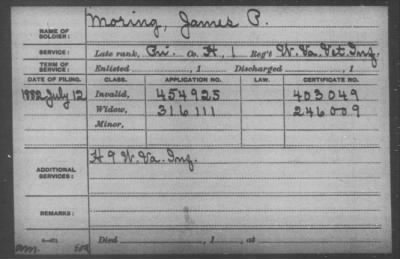 NAME OF SOLDIER: Moring, James P.
SERVICE: Late rank, Pri. Co. H, 1 Reg't W. Va. Vet. Inf.
TERM OF SERVICE: Enlisted , 1 Discharged , 1
DATE OF FILING. CLASS. APPLICATION NO. LAW. CERTIFICATE NO.
1882 July 12 Invalid, 454925 403049
Widow, 316111 246009
Minor,
ADDITIONAL SERVICES: H 9 W. Va. Inf.
REMARKS:
Died , 1 , at